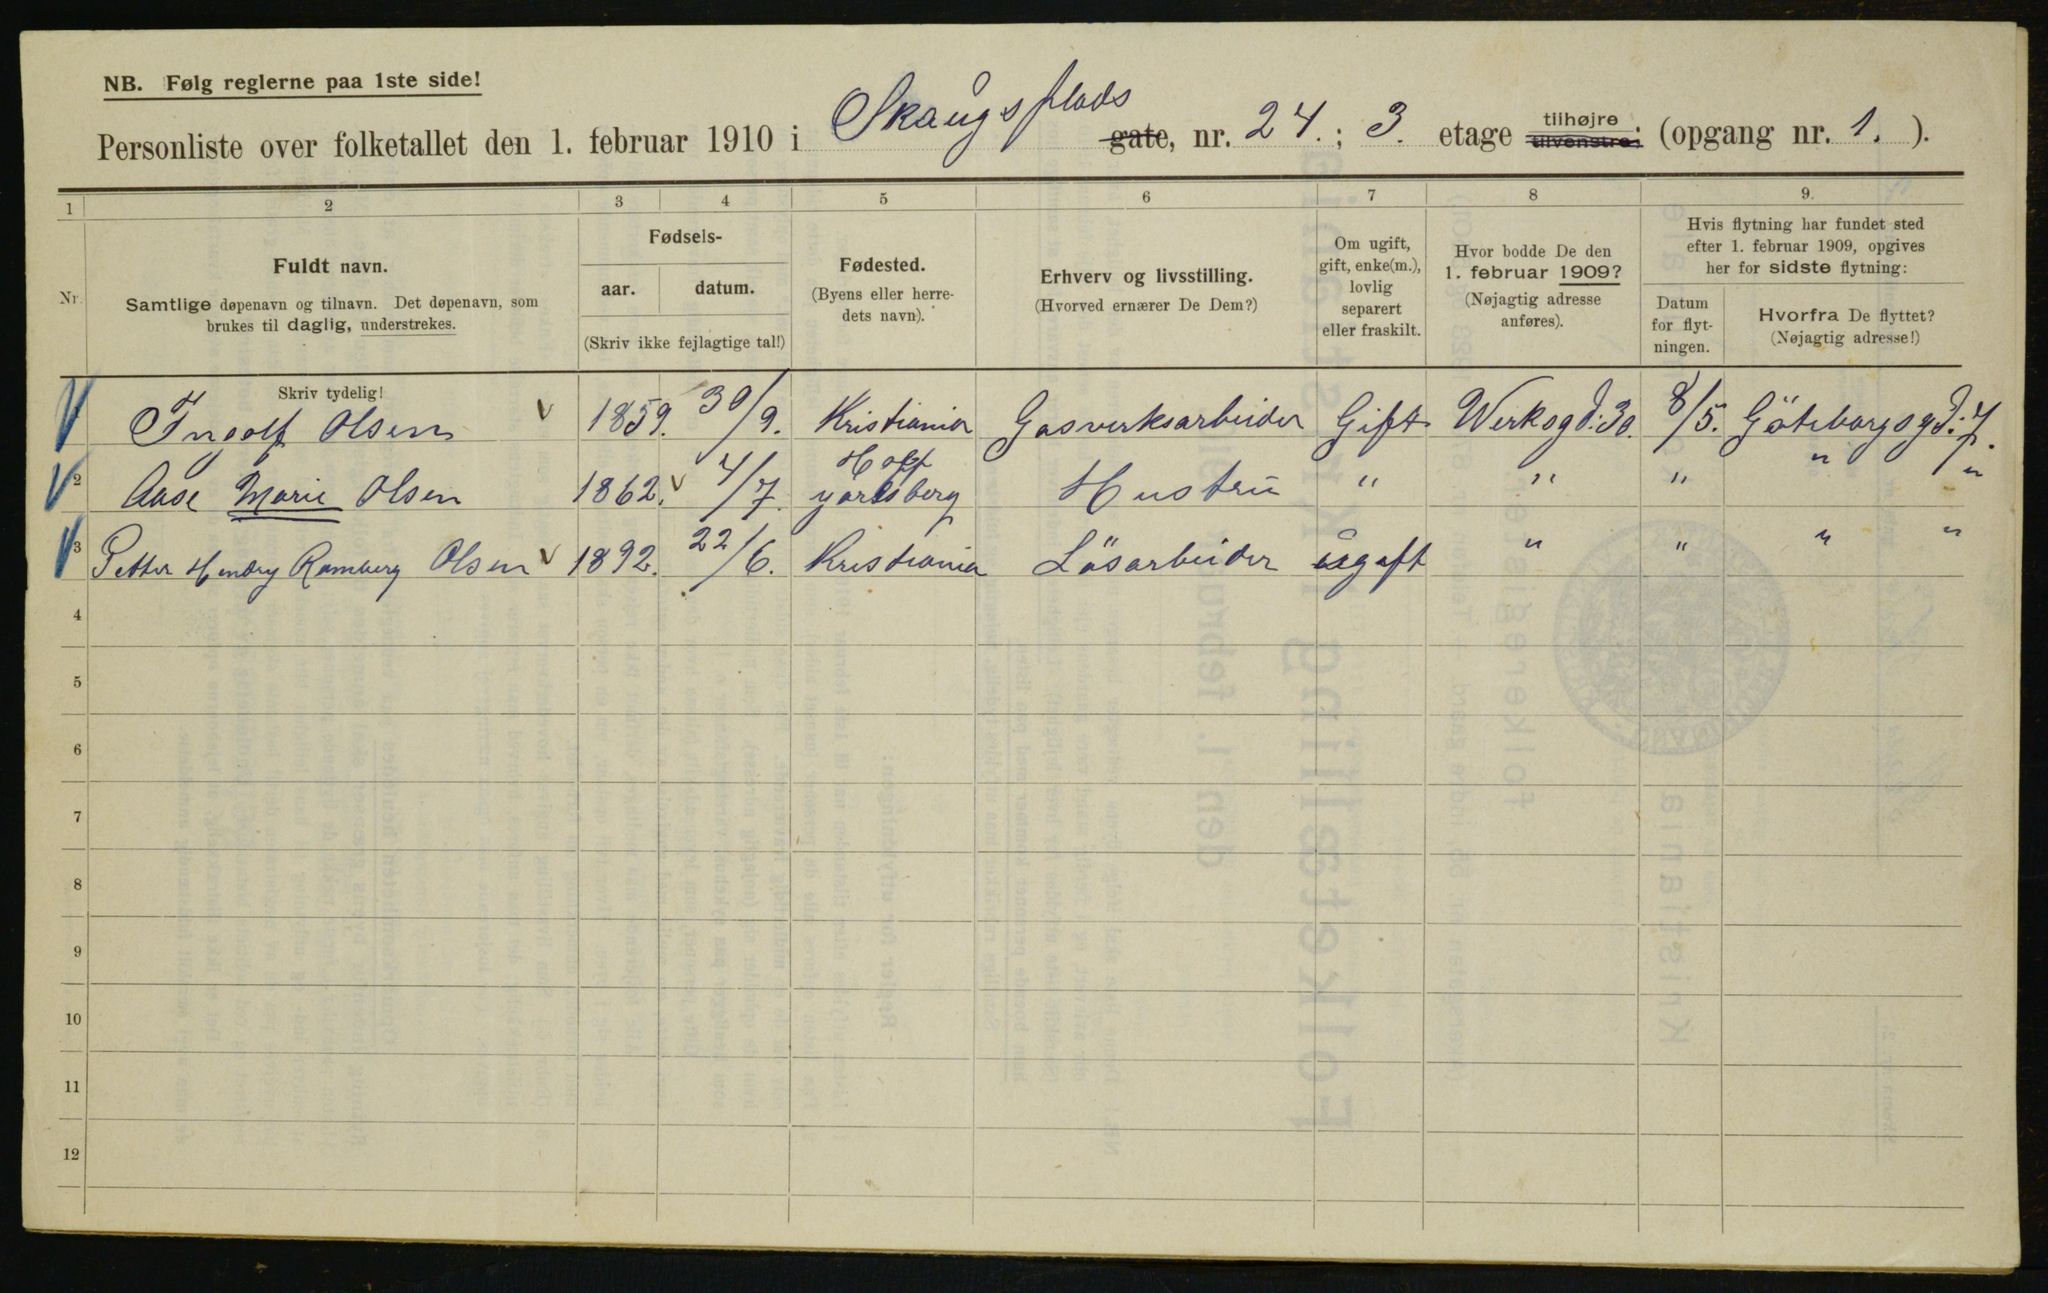 NB. Følg reglerne paa 1ste side!
Personliste over folketallet den 1. februar 1910 i Skaugs plads gate, nr. 24. ; 3. etage tilhøjre tilvenstre; (opgang nr. 1. ).
1 2 3 4 5 6 7 8 9.
Nr.
Fuldt navn.
Samtlige døpenavn og tilnavn. Det døpenavn, som
brukes til daglig, understrekes.
Fødsels-
aar. datum.
(Skriv ikke fejlagtige tal!)
Fødested.
(Byens eller herre-
dets navn).
Erhverv og livsstilling.
(Hvorved ernærer De Dem?)
Om ugift,
gift, enke(m.),
lovlig
separert
eller fraskilt.
Hvor bodde De den
1. februar 1909?
(Nøjagtig adresse
anføres).
Hvis flytning har fundet sted
efter 1. februar 1909, opgives
her for sidste flytning:
Datum
for flyt-
ningen.
Hvorfra De flyttet?
(Nøjagtig adresse!)
Skriv tydelig!
Ingolf Olsen v 1859. 30/9. Kristiania Gasverksarbeider Gift Werksgd: 30. 8/5. Göteborgsgd: 7.
2 Aase Marie Olsen 1862. v 4/7. Hoff Jarlsberg Hustru " " " " "
3 Petter Hendry Ramberg Olsen v 1892. 22/6. Kristiania Løsarbeider ugift " " " "
4
5
6
7
8
9
10
11
12